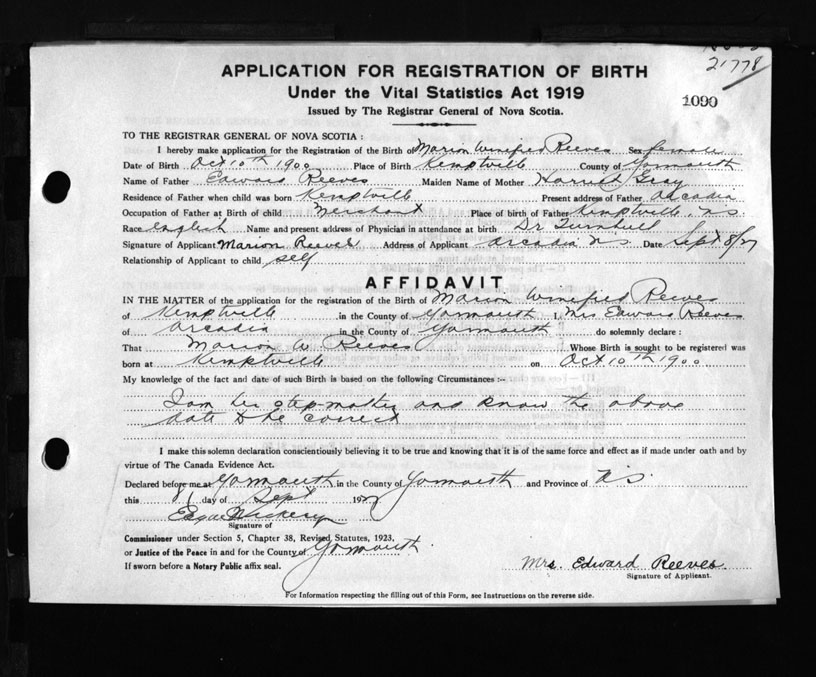 21778
1090
APPLICATION FOR REGISTRATION OF BIRTH
Under the Vital Statistics Act 1919
Issued by The Registrar General of Nova Scotia.
TO THE REGISTRAR GENERAL OF NOVA SCOTIA :
I hereby make application for the Registration of the Birth of Marion Winifred Reeves Sex female
Date of Birth Oct 10th 1900 Place of Birth Kemptville County of Yarmouth
Name of Father Edward Reeves Maiden Name of Mother Harriet Gray
Residence of Father when child was born Kemptville Present address of Father Arcadia
Occupation of Father at Birth of child Merchant Place of birth of Father Kemptville, N.S.
Race English Name and present address of Physician in attendance at birth Dr Turnbull
Signature of Applicant Marion Reeves Address of Applicant Arcadia N.S. Date Sept 8/27
Relationship of Applicant to child self
AFFIDAVIT
IN THE MATTER of the application for the registration of the Birth of Marion Winifred Reeves
of Kemptville in the County of Yarmouth I, Mrs Edward Reeves
of Arcadia in the County of Yarmouth do solemnly declare :
That Marion W Reeves Whose Birth is sought to be registered was
born at Kemptville on Oct 10th 1900
My knowledge of the fact and date of such Birth is based on the following Circumstances :-
I am her step-mother and know the above
date to be correct
I make this solemn declaration conscientiously believing it to be true and knowing that it is of the same force and effect as if made under oath and by
virtue of The Canada Evidence Act.
Declared before me at Yarmouth in the County of Yarmouth and Province of N.S.
this 8 day of Sept 1927
Signature of
Commissioner under Section 5, Chapter 38, Revised Statutes, 1923,
or Justice of the Peace in and for the County of Yarmouth.
If sworn before a Notary Public affix seal.
Mrs. Edward Reeves
Signature of Applicant.
For Information respecting the filling out of this Form, see Instructions on the reverse side.